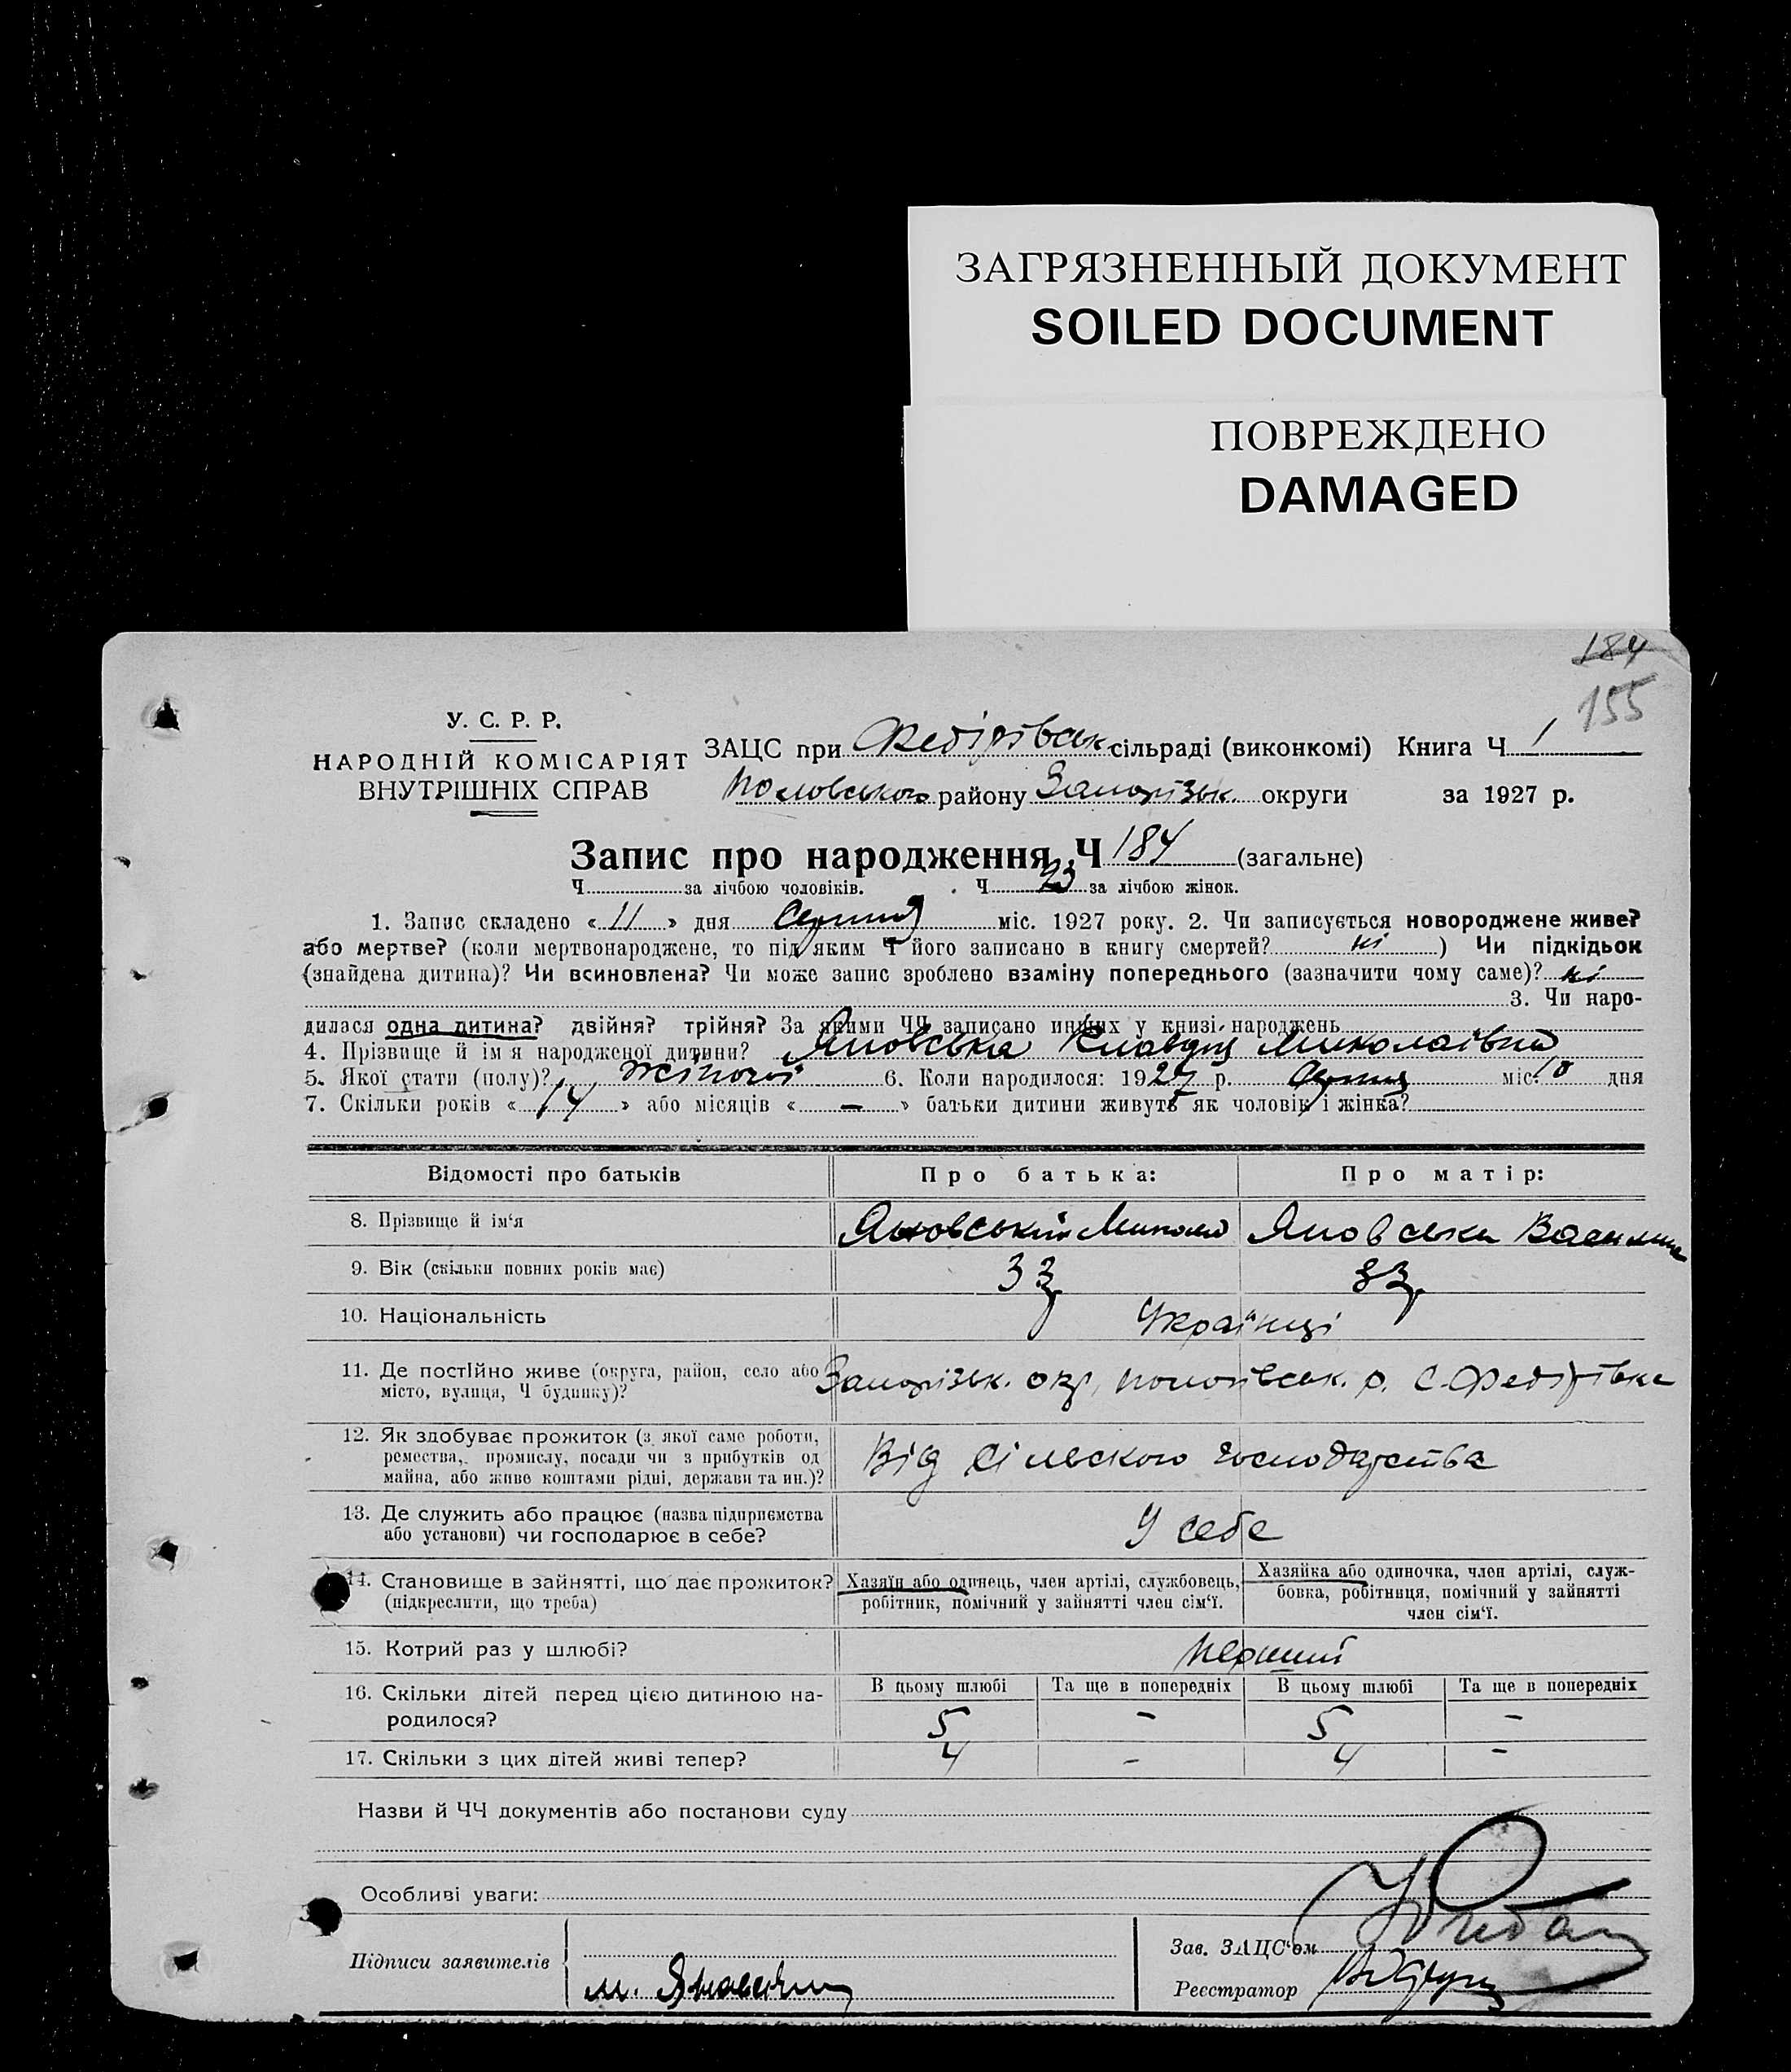 ЗАГРЯЗНЕННЫЙ ДОКУМЕНТ
SOILED DOCUMENT
ПОВРЕЖДЕНО
DAMAGED
184
155
У. С. Р. Р.
НАРОДНІЙ КОМІСАРІЯТ
ВНУТРІШНІХ СПРАВ
ЗАЦС при Федірівськ. сільраді (виконкомі) Книга Ч 1
району Запорізьк. округи за 1927 р.
Запис про народження Ч 184 (загальне)
Ч за лічбою чоловіків. Ч 93 за лічбою жінок.
1. Запис складено « 11 » дня Серпня міс. 1927 року. 2. Чи записується новороджене живе?
або мертве? (коли мертвонароджене, то під яким Ч його записано в книгу смертей? ні ) Чи підкідьок
(знайдена дитина)? Чи всиновлена? Чи може запис зроблено взаміну попереднього (зазначити чому саме)? ні
3. Чи наро-
дилася одна дитина? двійня? трійня? За якими ЧЧ записано инших у книзі народжень
4. Прізвище й ім я народженої дитини? Яновська Клавдія Миколаівна
5. Якої стати (полу)? жіночої 6. Коли народилося: 1927 р. Серпня міс. 10 дня
7. Скільки років « 14 » або місяців « — » батьки дитини живуть як чоловік і жінка?
Відомості про батьків Про батька: Про матір:
8. Прізвище й ім‘я Яновський Микола Яновська Василина
9. Вік (скільки повних років має) 33 33
10. Національність Українці
11. Де постійно живе (округа, район, село або Запорізьк. окр, пологівськ. р. с. Федірівка
місто, вулиця, Ч будинку)?
12. Як здобуває прожиток (з якої саме роботи,
ремества, промислу, посади чи з прибутків од Від сільского господарства
майна, або живе коштами рідні, держави та ин.)?
13. Де служить або працює (назва підприємства У себе
або установи) чи господарює в себе?
14. Становище в зайнятті, що дає прожиток? Хазяїн або одинець, член артілі, службовець, Хазяйка або одиночка, член артілі, служ-
(підкреслити, що треба) робітник, помічний у зайнятті член сім‘ї. бовка, робітниця, помічний у зайнятті
член сім‘ї.
15. Котрий раз у шлюбі? перший
16. Скільки дітей перед цією дитиною на- В цьому шлюбі Та ще в попередніх В цьому шлюбі Та ще в попередніх
родилося? 5 – 5 –
17. Скільки з цих дітей живі тепер? 4 – 4 –
Назви й ЧЧ документів або постанови суду
Особливі уваги:
Підписи заявителів
м. Яновский
Зав. ЗАЦС‘ом
Реєстратор